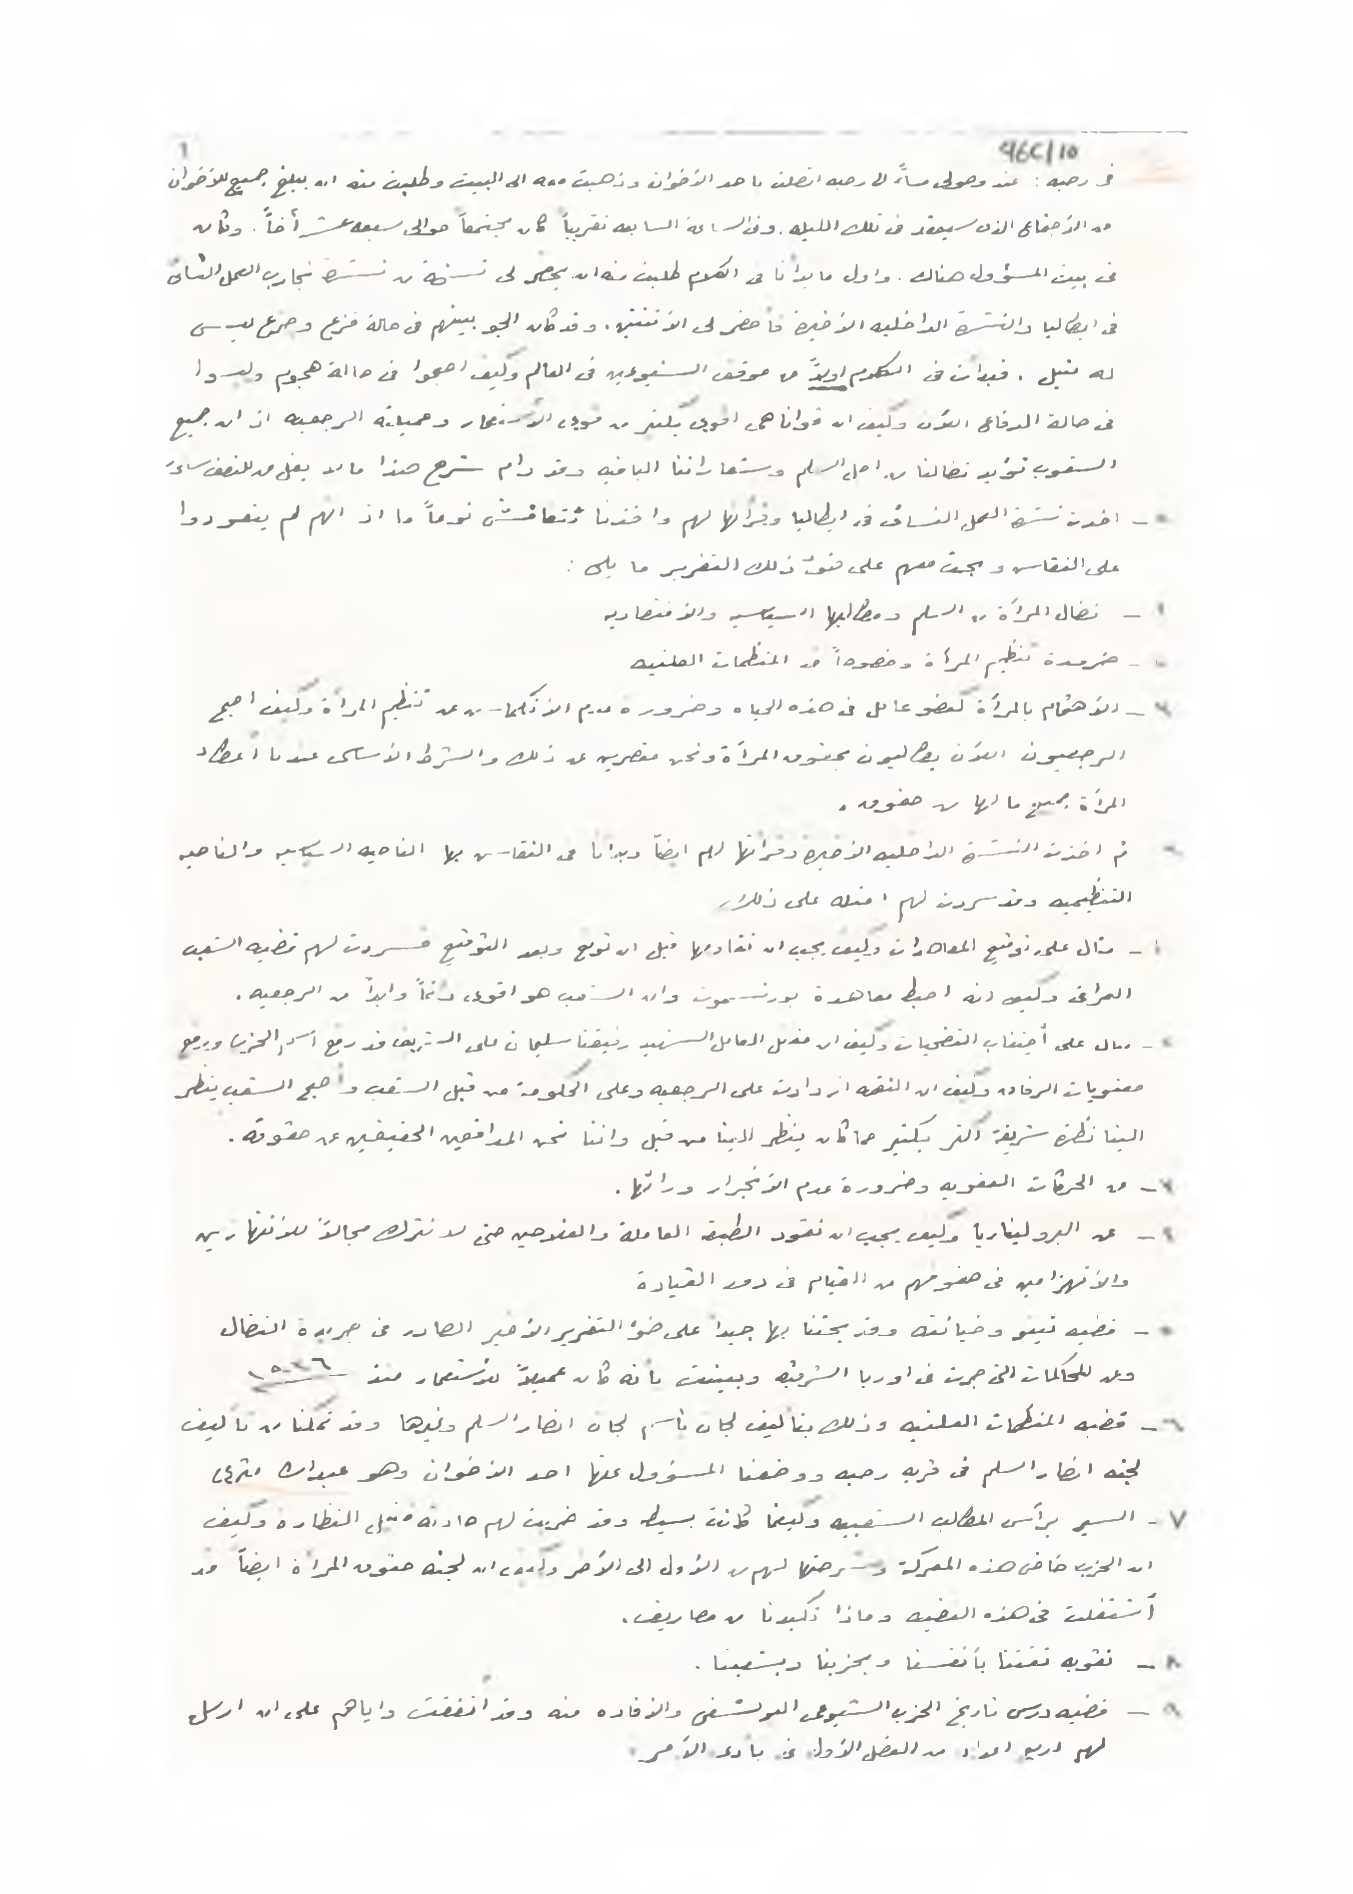 96C/10
1
في رحبه : عند وصولي مساءً الى رحبه اتصلت باحد الأخوان وذهبت معه الى البيت وطلبت منه ان يبلغ جميع الأخوان
عن الأجتماع الذي سيعقد في تلك الليله. وفي الساعة السابعه تقريباً كان مجتمعاً حوالي سبعه عشر أخاً. وكان
في بيت المسؤول هناك. واول ما بدأنا في الكلام طلبت منه ان يحضر لي نسخة من نشرة تجارب العمل النسائي
في ايطاليا والنشرة الداخليه الأخيرة فأحضر لي الأثنتين. وقد كان الجو بينهم في حالة فزع وجزع ليس
له مثيل. فبدأت في الكلام اولاً عن موقف الشيوعيين في العالم وكيف اصبحوا في حالة هجوم وليسوا
في حالة الدفاع الآن وكيف ان قوانا هي اقوى بكثير من قوى الأستعمار وعميلته الرجعيه اذ ان جميع
الشعوب تؤيد نضالنا من اجل السلم وشعاراتنا الباقيه وقد دام شرح هذا ما لا يقل عن النصف ساعة
- اخذت نشرة العمل النسائي في ايطاليا وقرأتها لهم واخذنا نتناقش نوعاً ما اذ انهم لم يتعودوا
على النقاش وبحثت معهم على ضوء ذلك التقرير ما يلي :
١ - نضال المرأة من السلم ومطاليبها السياسيه والأقتصاديه
٢ - ضرورة تنظيم المرأة وخصوصاً في المنظمات العلنيه
٣ - الأهتمام بالمرأة كعضو عامل في هذه الحياه وضرورة عدم الأنكماش عن تنظيم المرأة وكيف اصبح
الرجعيون الآن يطالبون بحقوق المرأة ونحن مقصرين عن ذلك والشرط الأساسي عندنا أعطاء
المرأة جميع ما لها من حقوق.
- ثم اخذت النشرة الداخليه الأخيرة وقرأتها لهم ايضاً وبدأنا في النقاش بها الناحيه السياسيه والناحيه
التنظيميه وقد سردت لهم امثله على ذلك
١ - مثال على توقيع المعاهدات وكيف يجب ان نقاومها قبل ان توقع وبعد التوقيع فسردت لهم قضيه الشعب
العراقي وكيف انه احبط معاهدة بورتسموث وان الشعب هو اقوى دائماً وابداً من الرجعيه.
٢ - مثال على أجتناب التضحيات وكيف ان مقتل العامل الشهيد رفيقنا سليمان على الشريف قد رفع اسم الحزب ورفع
معنويات الرفاق وكيف ان النقمه ازدادت على الرجعيه وعلى الحكومة من قبل الشعب وأصبح الشعب ينظر
الينا نظرة شريفة أكثر بكثير مما كان ينظر الينا من قبل واننا نحن المدافعين الحقيقيين عن حقوقه.
٣ - عن الحركات العفويه وضرورة عدم الأنجرار ورائها.
٤ - عن البروليتاريا وكيف يجب ان نقود الطبقه العاملة والفلاحين حتى لا نترك مجالاً للأنتهازيين
والأنهزاميين في صفوفهم من القيام في دور القيادة
٥ - قضيه تيتو وخيانته وقد بحثنا بها جيداً على ضوء التقرير الأخير الصادر في جريدة النضال
وعن المحاكمات التي جرت في اوربا الشرقيه وبينت بأنه كان عميلاً للأستعمار منذ ١٩٣٦
٦ - قضيه المنظمات العلنيه وذلك بتأليف لجان بأسم لجان انصار السلم وغيرها وقد تمكنا من تأليف
لجنه انصار السلم في قريه رحبه ووضعنا المسؤول عنها احد الأخوان وهو عبدالله
٧ - السير برأس المطالب الشعبيه وكيفما كانت بسيطه وقد ضربت لهم حادثه النظاره وكيف
ان الحزب خاض هذه المعركة وشرحتها لهم من الأول الى الأخر وكيف ان لجنه حقوق المرأة ايضاً قد
أشتغلت في هذه القضيه وماذا تكبدنا من مصاريف.
٨ - تقويه ثقتنا بأنفسنا وبحزبنا وبشعبنا.
٩ - قضيه درس تاريخ الحزب الشيوعي البولشفي والأفاده منه وقد أتفقت واياهم على ان ارسل
لهم اربع اعداد من الفصل الأول في بادئ الأمر.